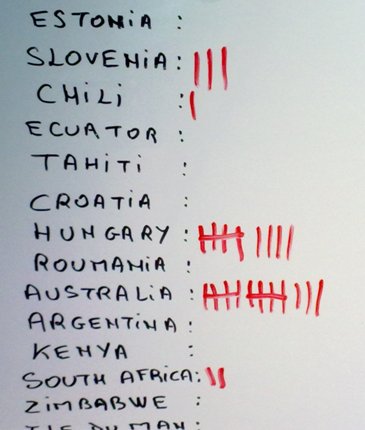 ESTONiA :
SLOVENiA : |||
CHiLi : |
ECUATOR :
TAHiTi :
CROATiA :
HUNGARY : 卌 ||||
ROUMANiA :
AUSTRALiA : 卌 卌 |||
ARGENTiNA :
KENYA :
SOUTH AFRiCA : ||
ZiMBABWE :
ILE DU MAN :